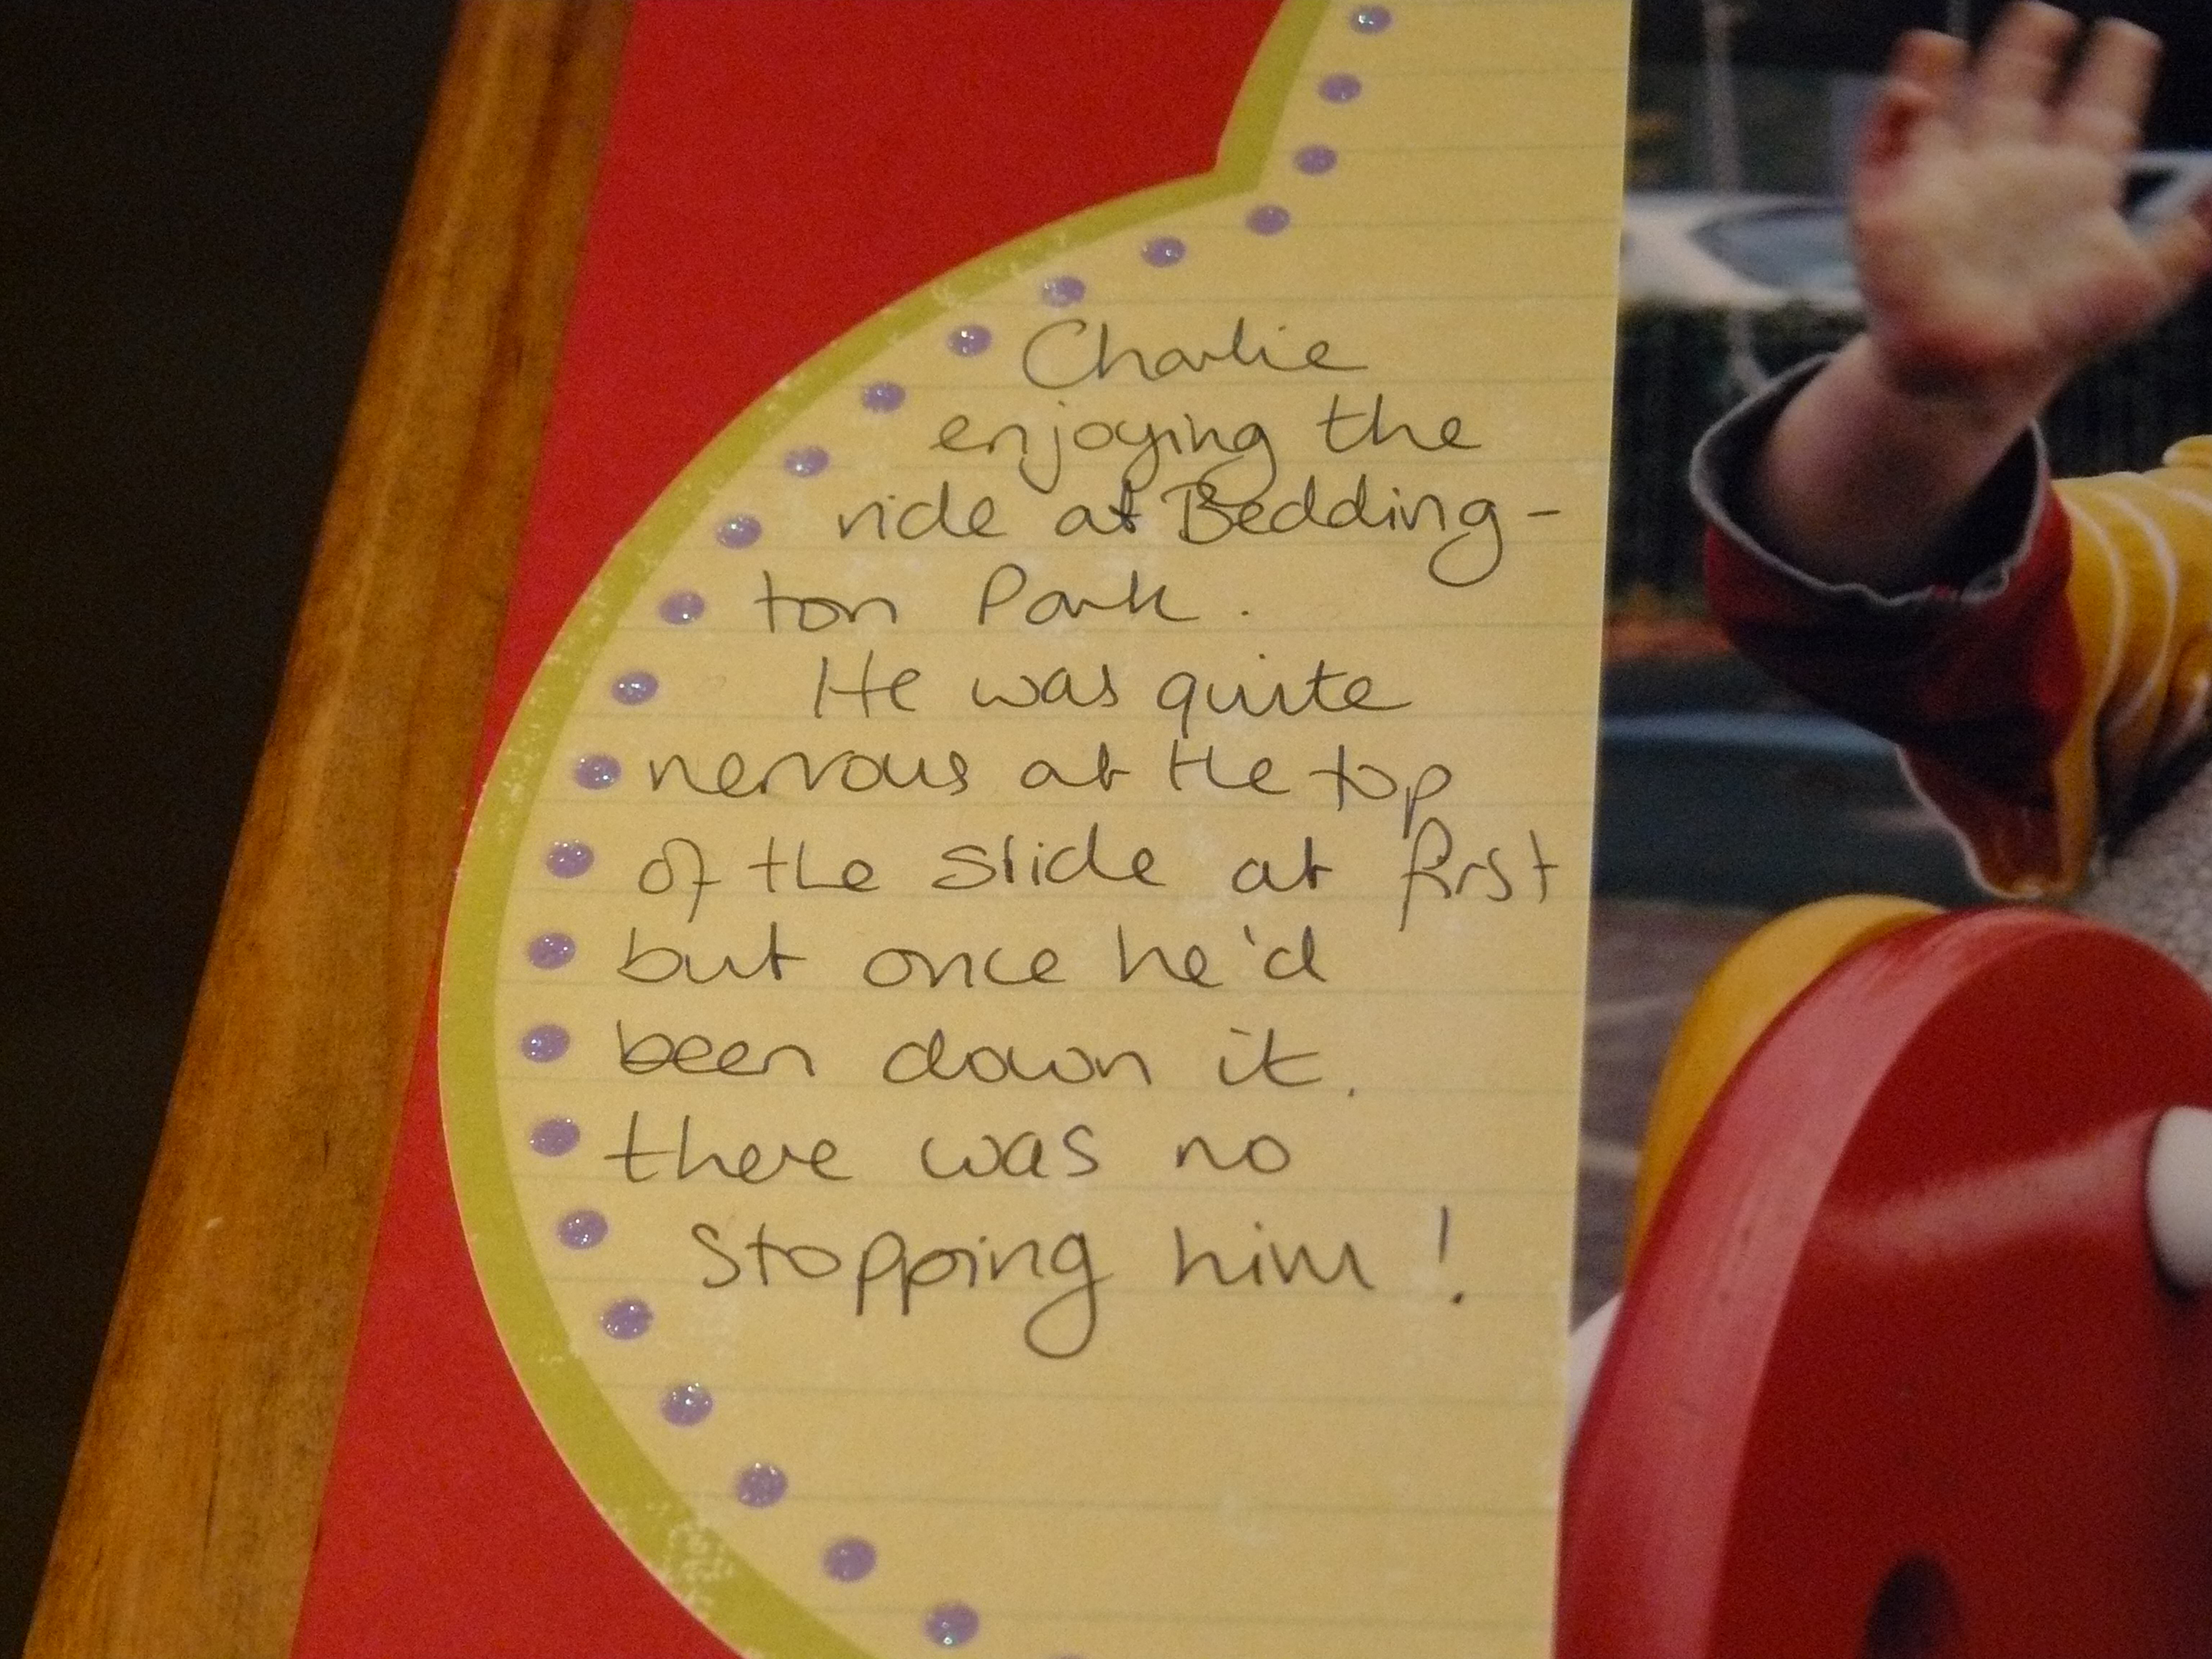 Charlie
enjoying the
ride at Bedding-
ton Park.
He was quite
nervous at the top
of the slide at first
but once he'd
been down it.
there was no
stopping him!